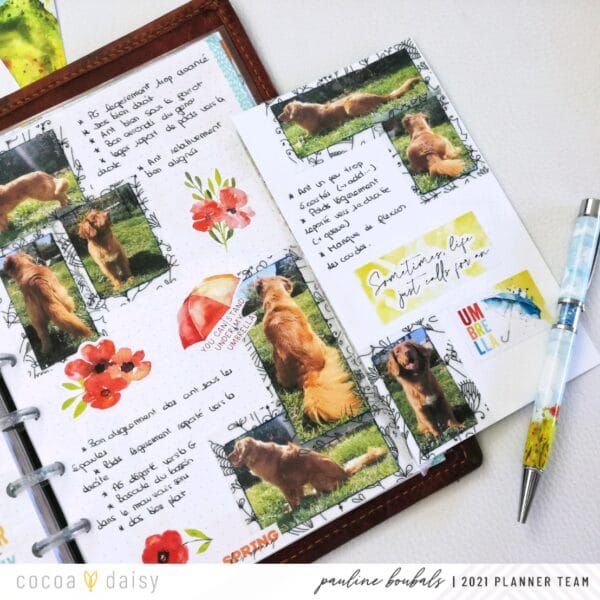 * AG légèrement trop avancé
* Dos bien droit
* Ant bien sous le garrot
* Bon arrondi du genou
* léger report de poids vers la
droite
* Ant relativement
bien aligné
* Ant un peu trop
écartés
* Poids légèrement
reporté vers la droite
(+ queue)
* Manque de flexion
des coudes.
Sometimes, life
just calls for an
UM
BRE
LLA
YOU CAN STAND
UNDER MY
UMBRELLA
* Bon alignement des ant sous les
épaules
* Poids légèrement reporté vers la
droite
* AG déporté vers G
* Bascule du bassin
dans le mauvais sens
* dos bien plat
SPRING
cocoa daisy
pauline boubals | 2021 PLANNER TEAM